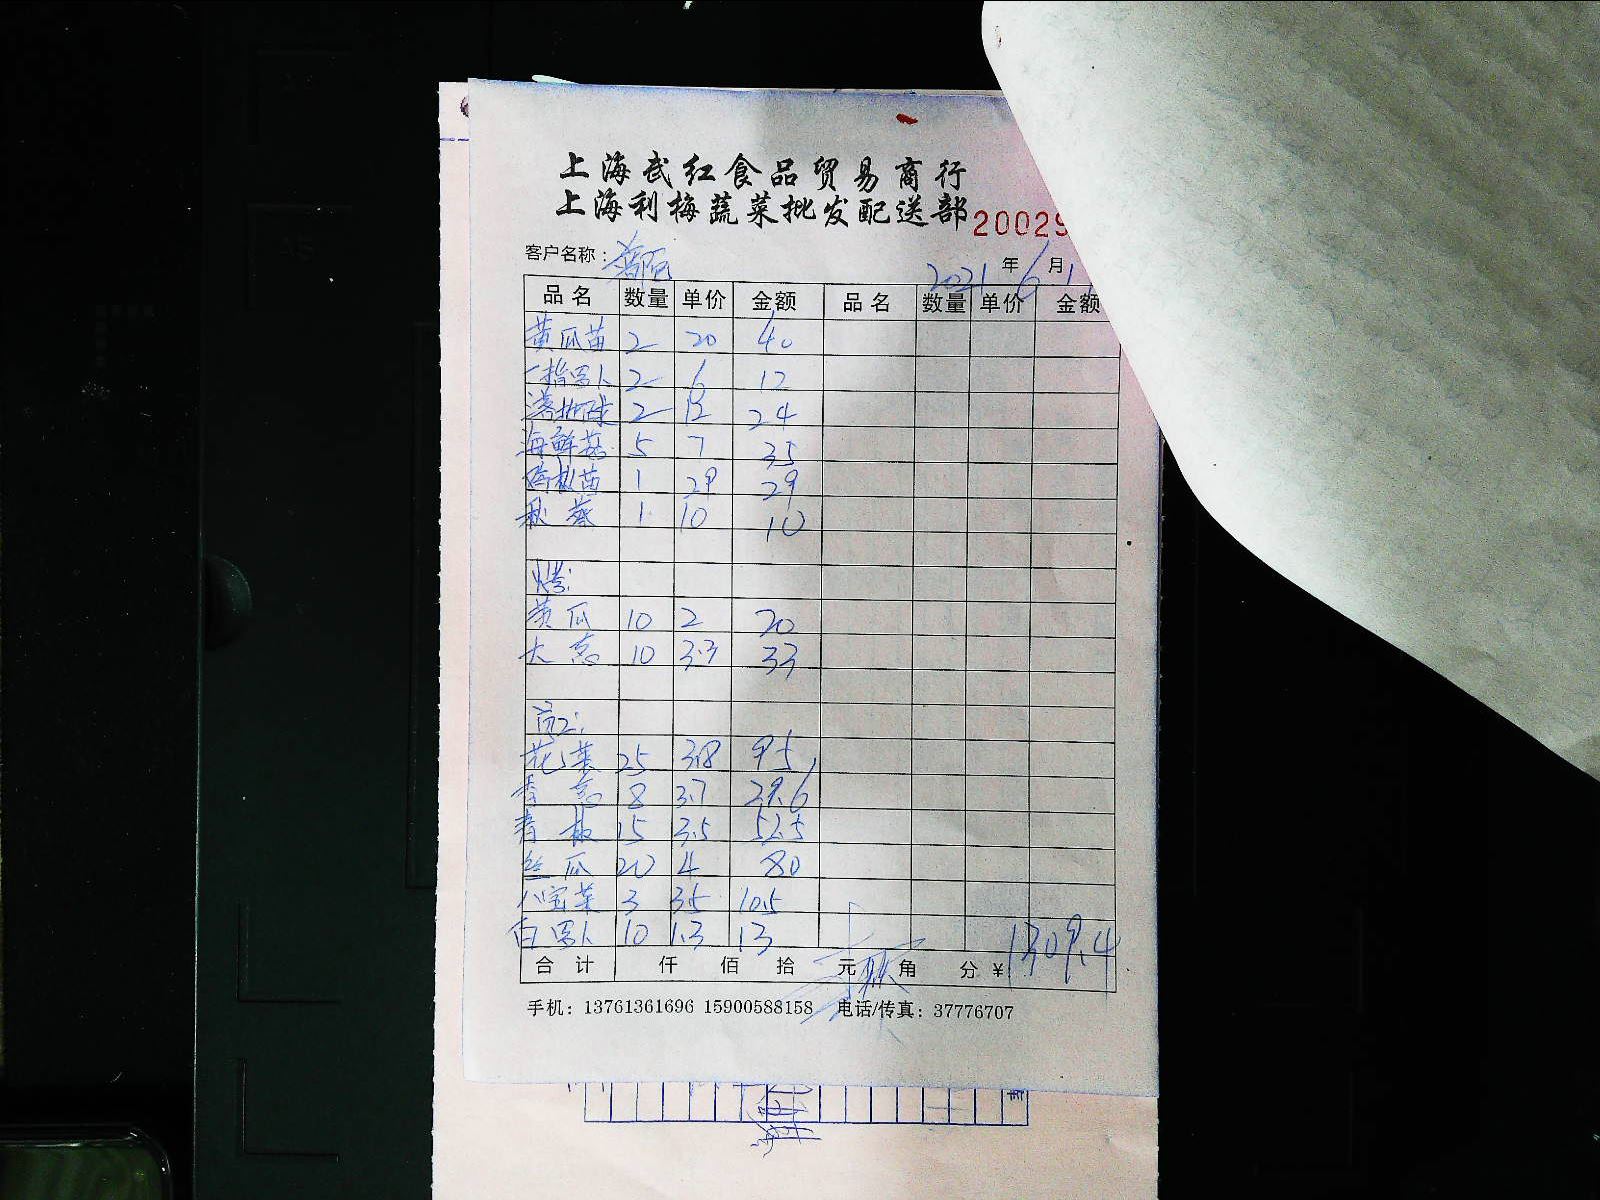 上海武红食品贸易商行
上海利梅蔬菜批发配送部 20029
客户名称： 2021年6月1
品名 数量 单价 金额 品名 数量 单价 金额
黄瓜苗 2 20 40
一指罗卜 2 6 12
2 12 24
海鲜菇 5 7 35
苗 1 29 29
秋葵 1 10 10
黄瓜 10 2 20
大葱 10 3.3 33
员工:
花菜 25 3.8 95
香葱 8 3.7 29.6
青椒 15 3.5 52.5
丝瓜 20 4 80
八宝菜 3 35 105
白罗卜 10 1.3 13
合计 仟 佰 拾 元 角 分 ¥1309.4
手机：13761361696 15900588158 电话/传真：37776707